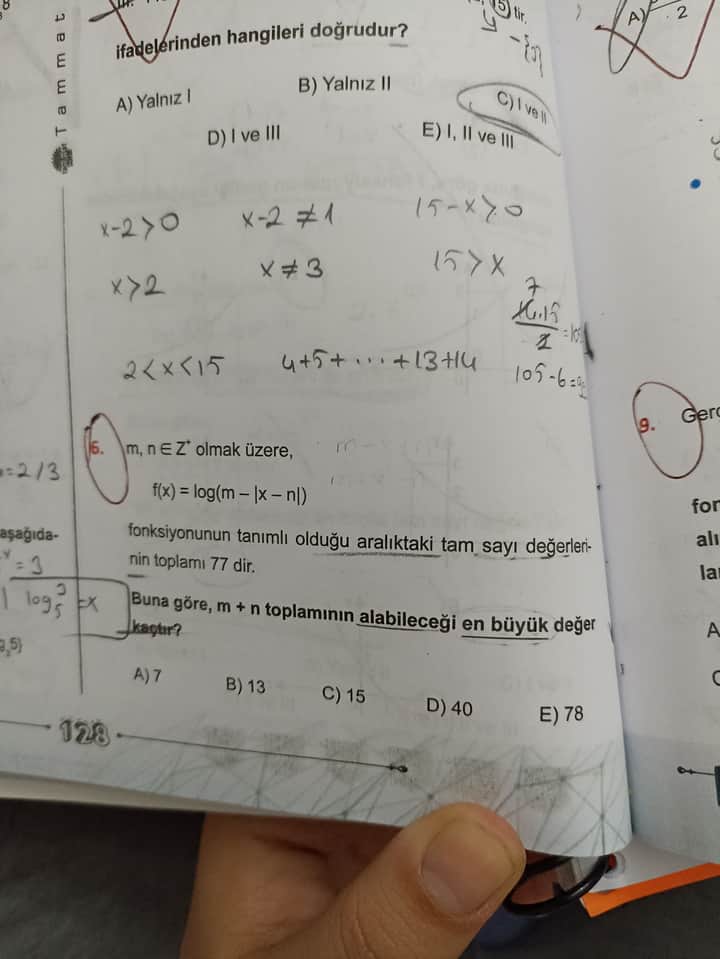 Tammat
15) tir.
ifadelerinden hangileri doğrudur?
A) Yalnız I
B) Yalnız II
C) I ve II
D) I ve III
E) I, II ve III
x-2>0
x-2≠1
15-x>0
x>2
x≠3
15>x
2<x<15
4+5+...+13+14
7
14.15
2
105-6=
6.
m, n ∈ Z⁺ olmak üzere,
f(x) = log(m – |x – n|)
fonksiyonunun tanımlı olduğu aralıktaki tam sayı değerleri-
nin toplamı 77 dir.
Buna göre, m + n toplamının alabileceği en büyük değer
kaçtır?
A) 7
B) 13
C) 15
D) 40
E) 78
128
=2/3
aşağıda-
=3
log
=x
A)
2
9.
Gerç
fon
alı
la
A